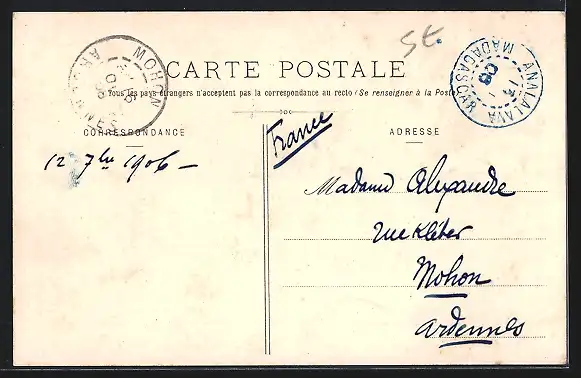 St.
MOHON
ARDENNES
CARTE POSTALE
Tous les pays étrangers n'acceptent pas la correspondance au recto (Se renseigner à la Poste)
ANALALAVA
MADAGASCAR
CORRESPONDANCE
ADRESSE
12 7bre 1906 –
France
Madame Alexandre
rue Kléber
Mohon
Ardennes